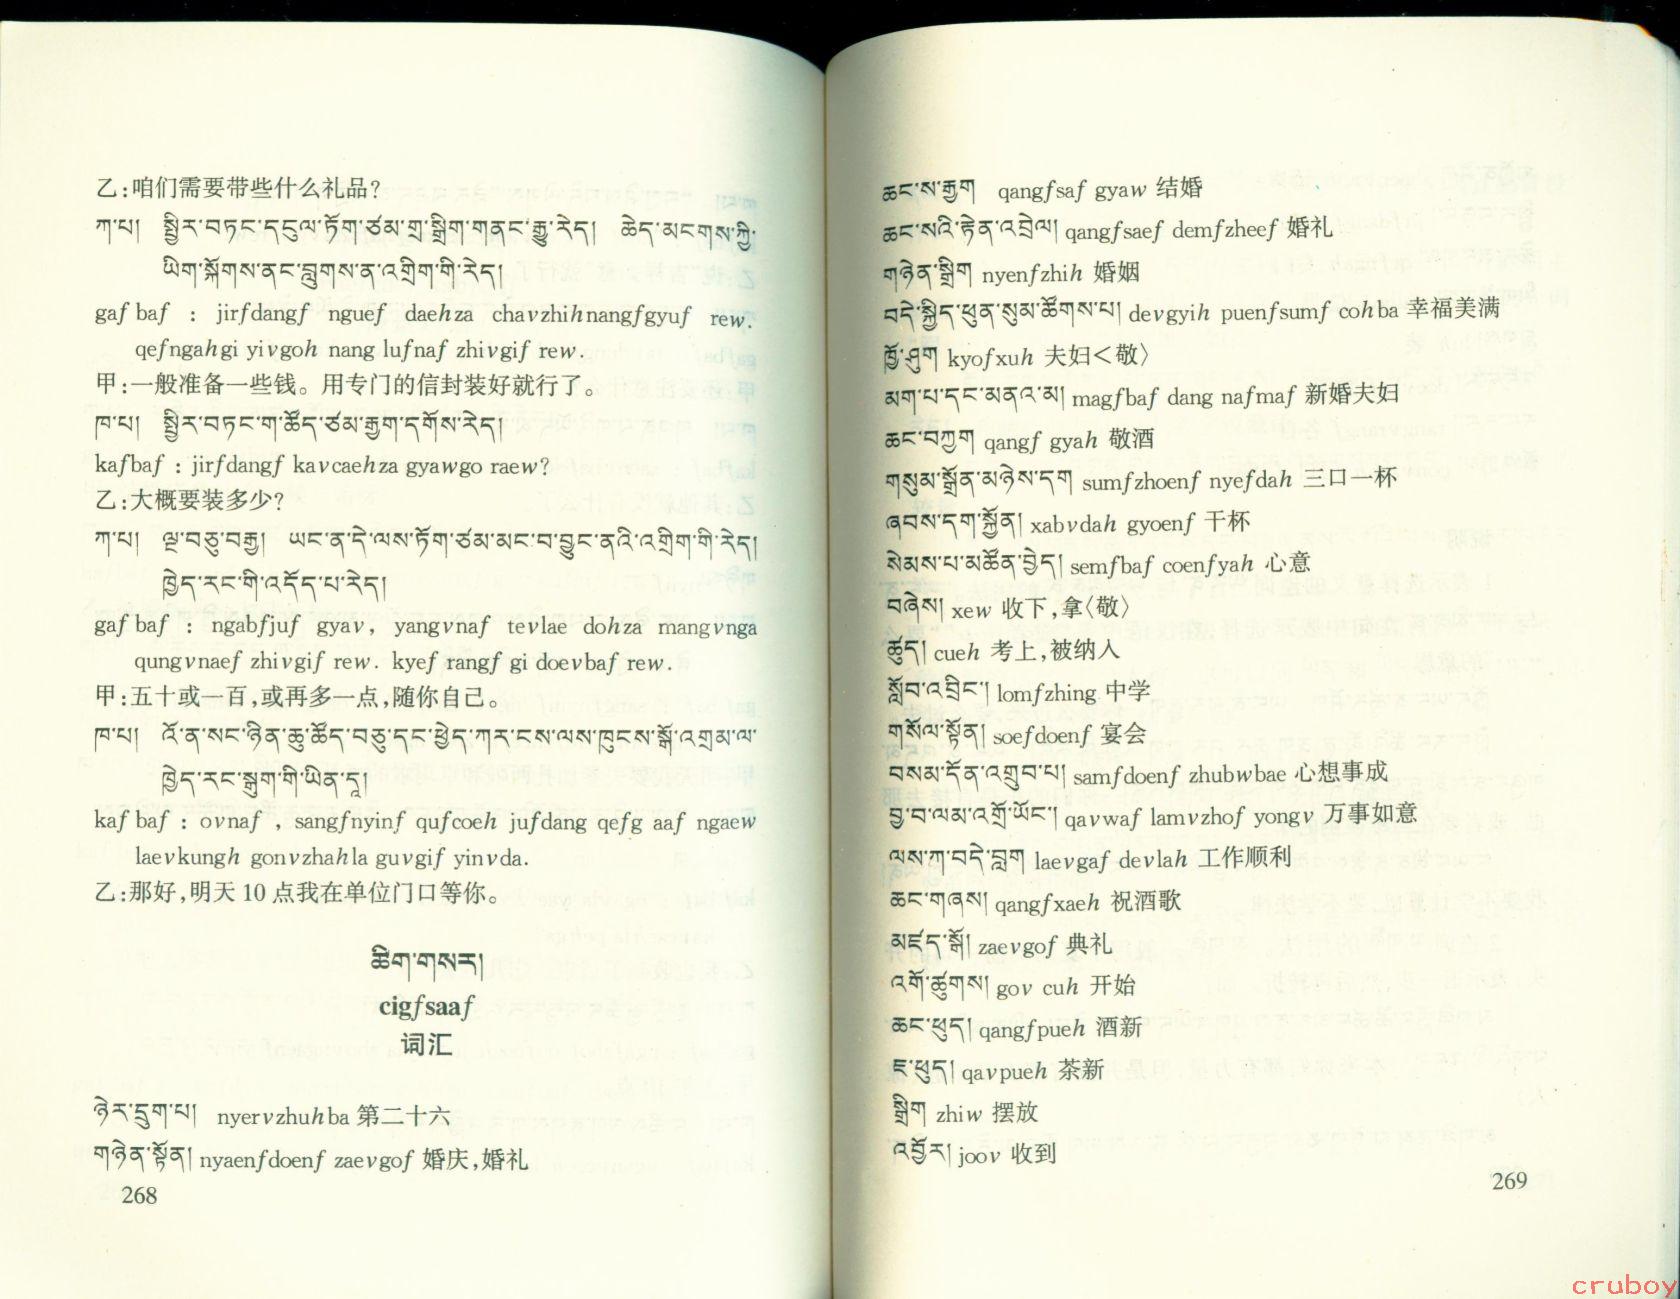 乙:咱们需要带些什么礼品?
ཀ་པ། སྤྱིར་བཏང་དངུལ་ཏོག་ཙམ་གྲ་སྒྲིག་གནང་རྒྱུ་རེད། ཆེད་མངགས་ཀྱི་
ཡིག་སྐོགས་ནང་བླུགས་ན་འགྲིག་གི་རེད།
gaf baf : jirfdangf nguef daehza chavzhihnangfgyuf rew.
qefngahgi yivgoh nang lufnaf zhivgif rew.
甲:一般准备一些钱。用专门的信封装好就行了。
ཁ་པ། སྤྱིར་བཏང་ག་ཚོད་ཙམ་རྒྱག་དགོས་རེད།
kafbaf : jirfdangf kavcaehza gyawgo raew?
乙:大概要装多少?
ཀ་པ། ལྔ་བཅུ་བརྒྱ། ཡང་ན་དེ་ལས་ཏོག་ཙམ་མང་བ་བྱུང་ནའི་འགྲིག་གི་རེད།
ཁྱེད་རང་གི་འདོད་པ་རེད།
gaf baf : ngabfjuf gyav, yangvnaf tevlae dohza mangvnga
qungvnaef zhivgif rew. kyef rangf gi doevbaf rew.
甲:五十或一百,或再多一点,随你自己。
ཁ་པ། འོ་ན་སང་ཉིན་ཆུ་ཚོད་བཅུ་དང་ཕྱེད་ཀར་ངས་ལས་ཁུངས་སྒོ་འགྲམ་ལ་
ཁྱེད་རང་སྒུག་གི་ཡིན་དཱ།
kaf baf : ovnaf , sangfnyinf qufcoeh jufdang qefg aaf ngaew
laevkungh gonvzhahla guvgif yinvda.
乙:那好,明天 10 点我在单位门口等你。
ཚིག་གསར།
cigfsaaf
词汇
ཉེར་དྲུག་པ། nyervzhuhba 第二十六
གཉེན་སྟོན། nyaenfdoenf zaevgof 婚庆,婚礼
268
ཆང་ས་རྒྱག qangfsaf gyaw 结婚
ཆང་སའི་རྟེན་འབྲེལ། qangfsaef demfzheef 婚礼
གཉེན་སྒྲིག nyenfzhih 婚姻
བདེ་སྐྱིད་ཕུན་སུམ་ཚོགས་པ། devgyih puenfsumf cohba 幸福美满
ཁྱོ་ཤུག kyofxuh 夫妇<敬〉
མག་པ་དང་མནའ་མ། magfbaf dang nafmaf 新婚夫妇
ཆང་བཀྱག qangf gyah 敬酒
གསུམ་སྒྲོན་མཉེས་དག sumfzhoenf nyefdah 三口一杯
ཞབས་དག་སྐྱོན། xabvdah gyoenf 干杯
སེམས་པ་མཚོན་བྱེད། semfbaf coenfyah 心意
བཞེས། xew 收下,拿〈敬〉
ཚུད། cueh 考上,被纳人
སློབ་འབྲིང་། lomfzhing 中学
གསོལ་སྟོན། soefdoenf 宴会
བསམ་དོན་འགྲུབ་པ། samfdoenf zhubwbae 心想事成
བྱ་བ་ལམ་འགྲོ་ཡོང་། qavwaf lamvzhof yongv 万事如意
ལས་ཀ་བདེ་བླག laevgaf devlah 工作顺利
ཆང་གཞས། qangfxaeh 祝酒歌
མཛད་སྒོ། zaevgof 典礼
འགོ་ཚུགས། gov cuh 开始
ཆང་ཕུད། qangfpueh 酒新
ཇ་ཕུད། qavpueh 茶新
སྒྲིག zhiw 摆放
འབྱོར། joov 收到
269
cruboy